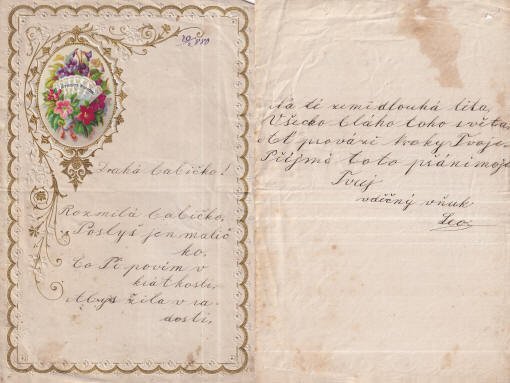 Drahá babičko!
Rozmilá babičko,
Poslyš jen malič
ko.
Co Ti povím v
krátkosti,
Abys žila v ra-
dosti,
Na té zemi dlouhá léta,
Všecko bláho toho světa,
Ať provází kroky Tvoje.
Přijmě toto přání moje.
Tvůj
vděčný vnuk
Leo.